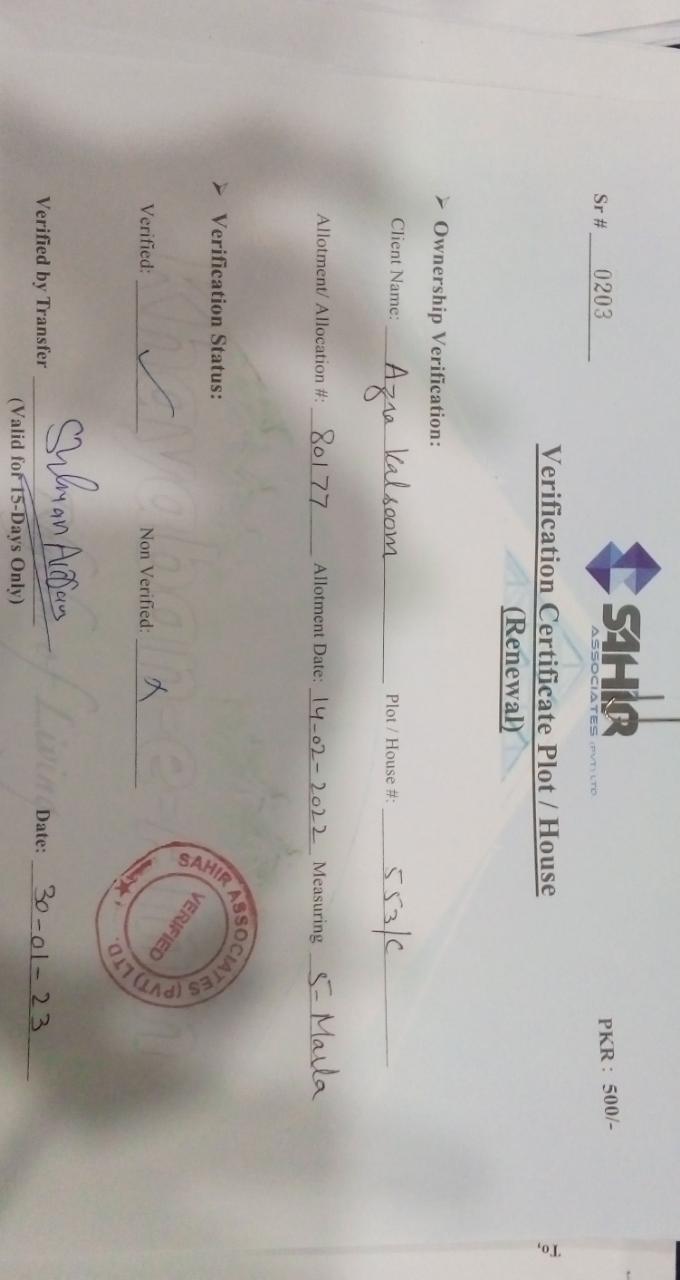 Sr # 0203
SAHIR
ASSOCIATES (PVT) LTD
PKR : 500/-
Verification Certificate Plot / House
(Renewal)
➤ Ownership Verification:
Client Name: Azra Kalsoom Plot / House #: 553/C
Allotment/ Allocation #: 80177 Allotment Date: 14-02-2022 Measuring 5-Marla
➤ Verification Status:
Verified: ✓ Non Verified: x
SAHIR ASSOCIATES (PVT) LTD.
VERIFIED
Verified by Transfer Date: 30-01-23
(Valid for 15-Days Only)
of Living
To,